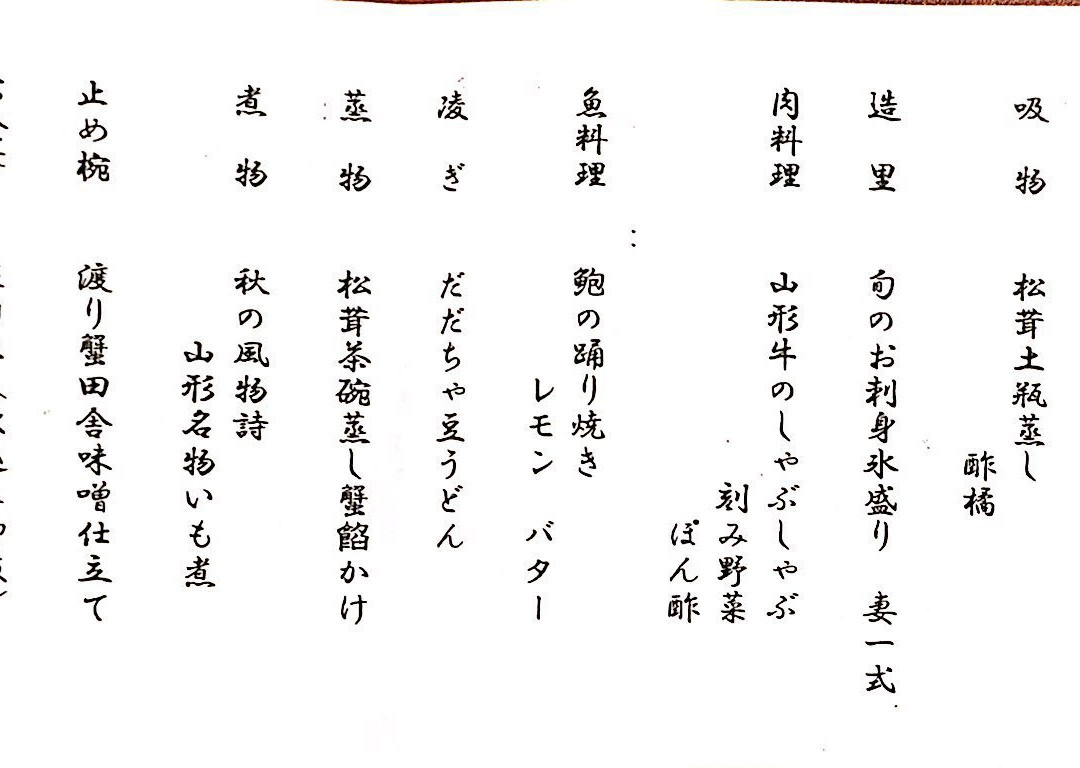 吸物 松茸土瓶蒸し
酢橘
造里 旬のお刺身氷盛り 妻一式
肉料理 山形牛のしゃぶしゃぶ
刻み野菜
ぽん酢
魚料理 鮑の踊り焼き
レモン バター
凌ぎ だだちゃ豆うどん
蒸物 松茸茶碗蒸し蟹餡かけ
煮物 秋の風物詩
山形名物いも煮
止め椀 渡り蟹田舎味噌仕立て